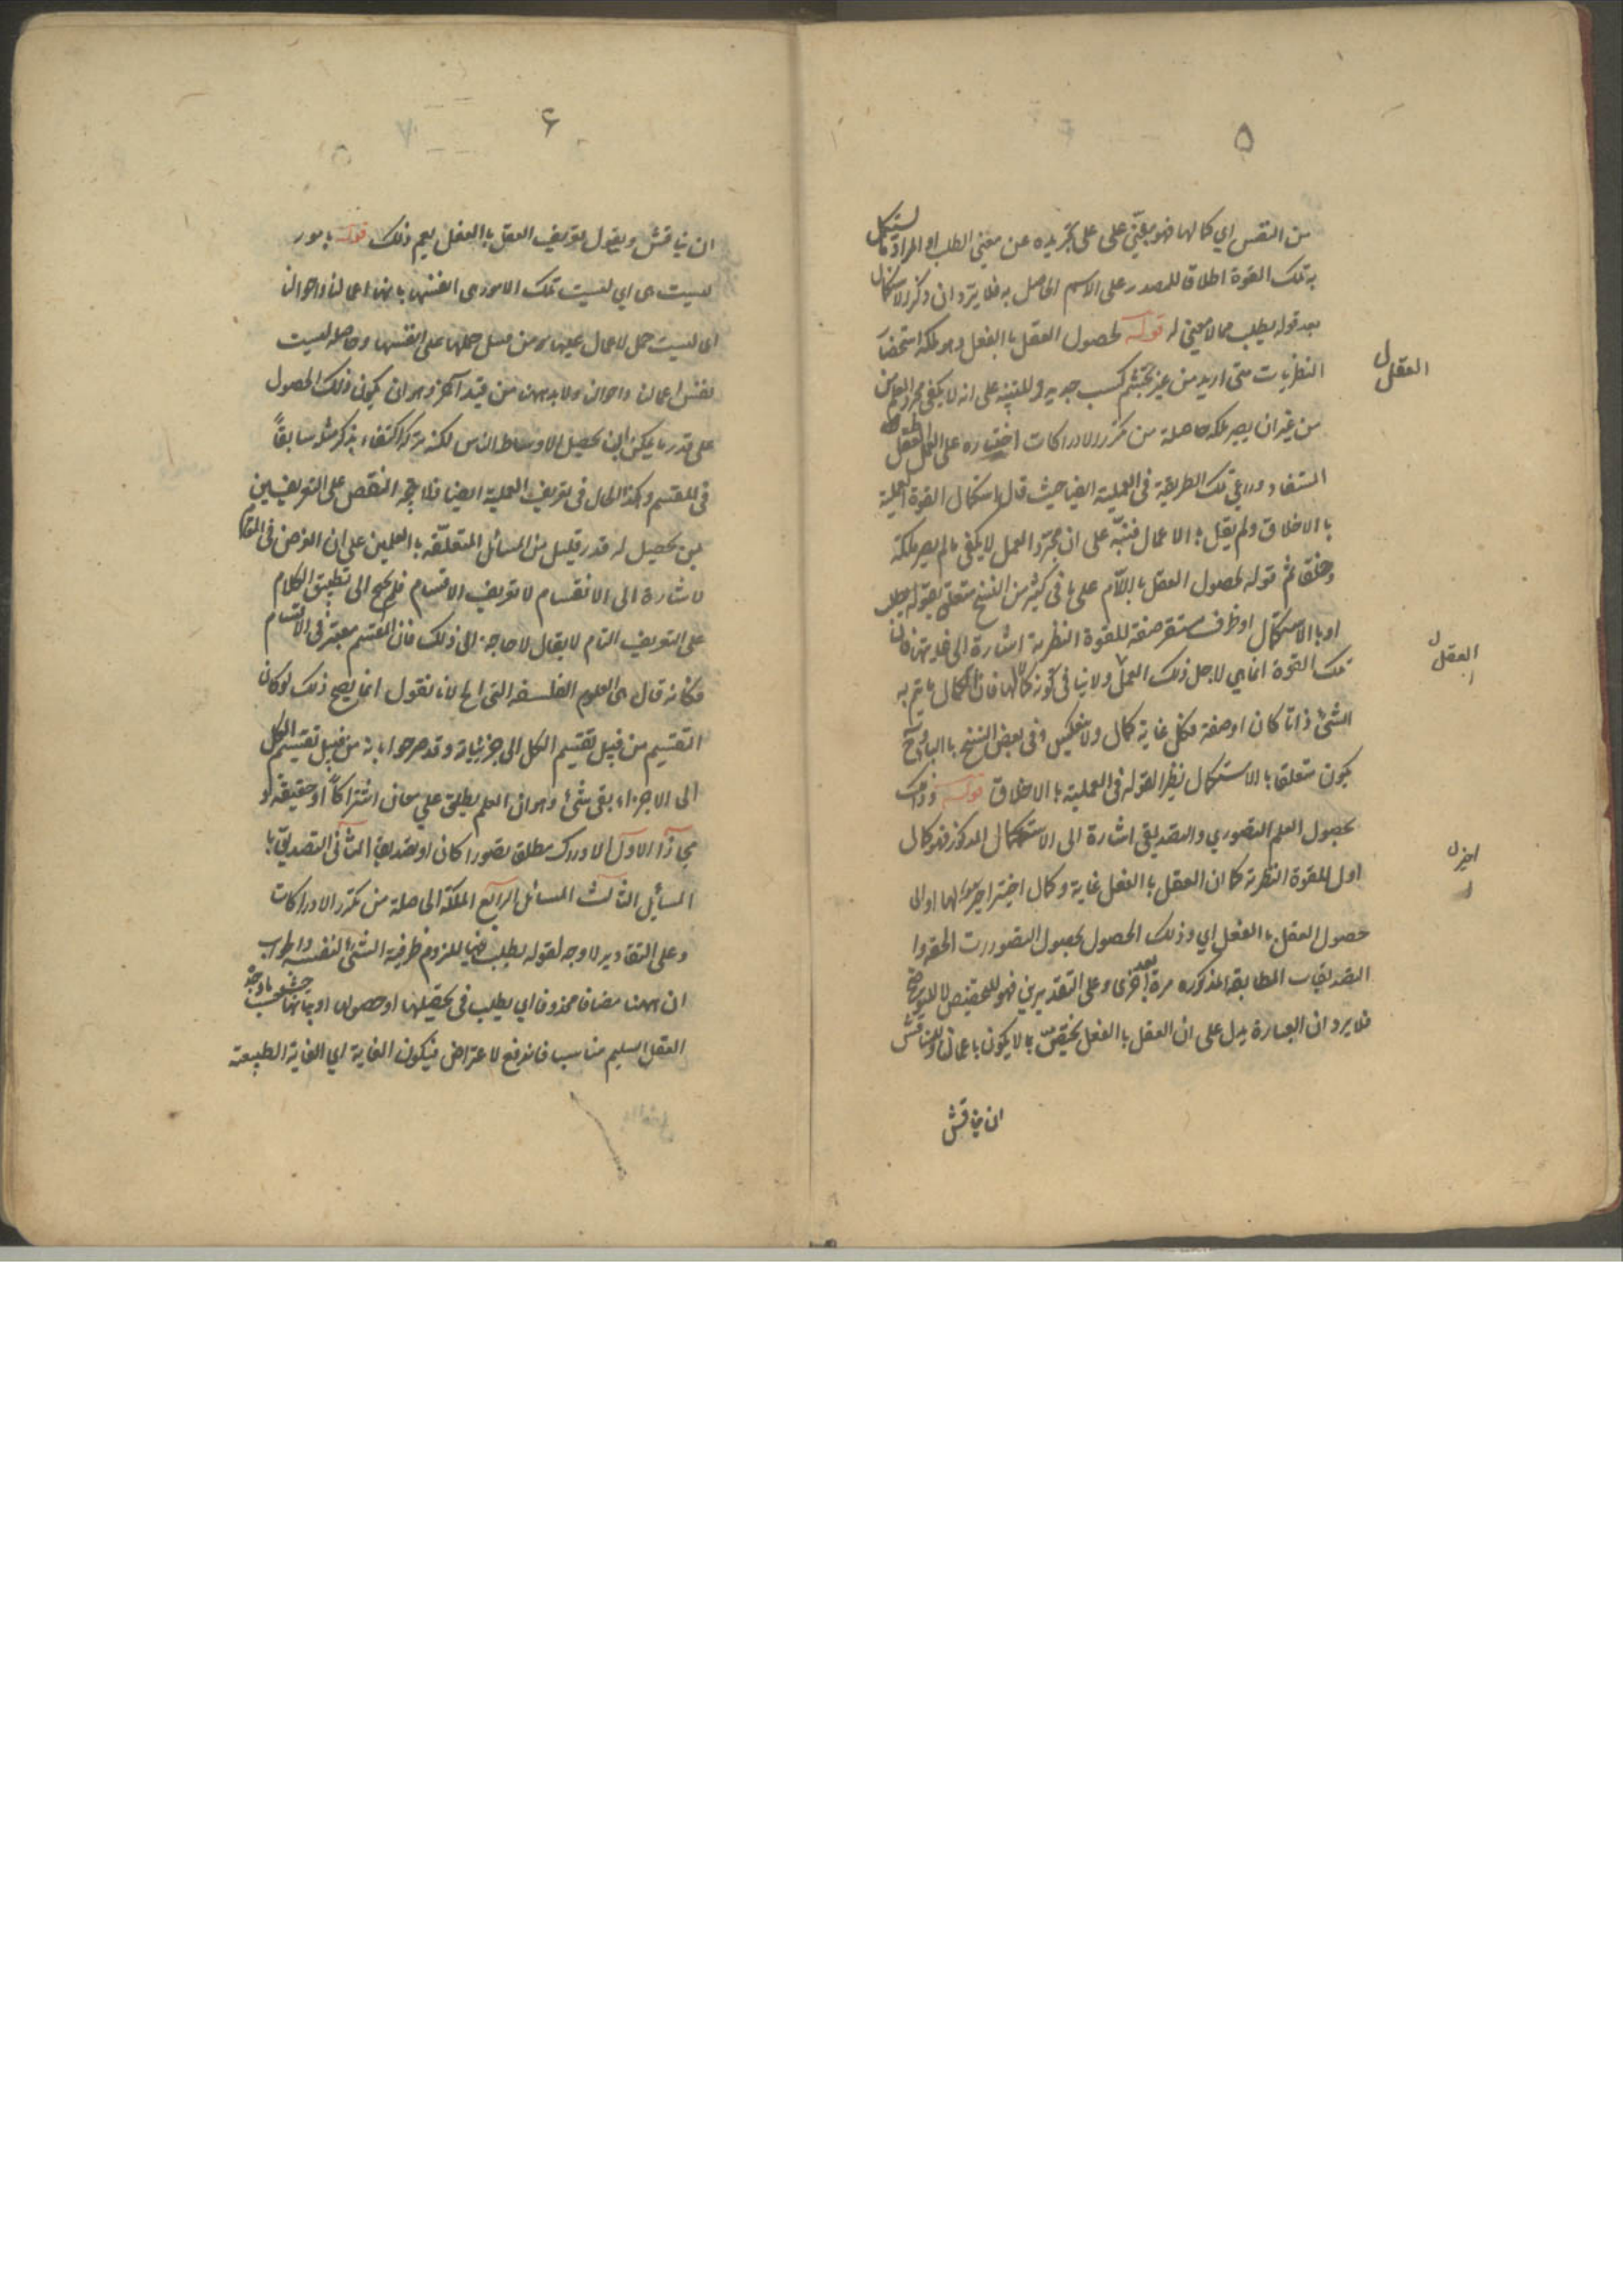 ٥
من النفس اي كمالها فهو مبني على تجريده عن معنى الطلب او المراد ما تستكمل
به تلك القوة اطلاق للمصدر على الاسم الحاصل به فلا يرد ان ذكر الاستكمال
بعد قوله يطلب مما لا معنى له قوله لحصول العقل بالفعل وهو ملكة استحضار
النظريات متى اريد من غير تجشم كسب جديد وللتنبيه على انه لا يكفي مجرد العلم
من غير ان يصير ملكة حاصلة من تكرر الادراكات اختاره على العقل
المستفاد وراعى تلك الطريقة في العملية ايضا حيث قال استكمال القوة العملية
بالاخلاق ولم يقل بالاعمال فنبّه على ان مجرّد العمل لا يكفي ما لم يصر ملكة
وخلقا ثم قوله لحصول العقل باللّام على ما في كثير من النسخ متعلق بقوله يطلب
او بالاستكمال او ظرف مستقر صفة للقوة النظرية اشارة الى غايتها فان
تلك القوة انما هي لاجل ذلك العمل ولا ينافي كونه كمالها فان الكمال ما يتم به
الشئ ذاتا كان او صفة فكل غاية كمال ولا ينعكس وفي بعض النسخ بالباء وح
يكون متعلقا بالاستكمال نظير القوله في العملية بالاخلاق قوله وذلك
بحصول العلم التصوري والتصديقي اشارة الى الاستكمال المذكور فهو كمال
اول للقوة النظرية كما ان العقل بالفعل غاية وكمال اخير لها او الى
حصول العقل بالفعل اي وذلك الحصول بحصول التصورات
التصديقات المطابقة المذكوره مرة بعد اخرى وعلى التقديرين فهو للتخصيص لا للتوضيح
فلا يرد ان العبارة يدل على ان العقل بالفعل يختصّ بما لا يكون باعمالنا وللمناقش
ان يناقش
العقل ل
العقل ل
اخير ل
٦
ان يناقش ويقول تعريف العقل بالفعل يعم ذلك قوله بامور
ليست هى اي ليست تلك الامور هى انفسها بانها اعمالنا واحوالنا
اى ليست حمل الاعمال عليها من قبيل حملها على انفسها وحاصله ليست
نفس اعمالنا واحوالنا ولا بد ههنا من قيد آخر وهو ان يكون ذلك الحصول
على قدر ما يمكن تحصيل الاوساط الناس لكنه تركه اكتفاء بذكر مثله سابقاً
في المقسم وكذا الحال في تعريف العملية ايضا فلا يتجه النقض على التعريفين
بمن تحصيل له قدر قليل من المسائل المتعلّقة بالعلمين على ان الغرض في المقام
الاشارة الى الانقسام لا تعريف الاقسام فلم يحتج الى تطبيق الكلام
على التعريف التام لا يقال لا حاجة الى ذلك فان المقسم معتبر في الاقسام
فكانه قال هى العلوم الفلسفة التى الخ لانا نقول انما يصح ذلك لو كان
التقسيم من قبيل تقسيم الكل الى جزئياته وقد صرحوا بانه من قبيل تقسيم الكل
الى الاجزاء بقى شئ وهو ان العلم يطلق على معان اشتراكاً او حقيقة او
مجازاً الاول الادراك مطلق تصورا كان او تصديقا الثاني التصديق با
المسائل الثالث المسائل الرابع الملكة الحاصلة من تكرر الادراكات
وعلى التقادير لا وجه لقوله يطلب فيها للزوم ظرفية الشئ لنفسه والجواب
ان ههنا مضافا محذوفا اي يطلب في تحصيلها او حصولها او
العقل السليم مناسب فاندفع الاعتراض فيكون الغاية اي الغاية الطبيعة